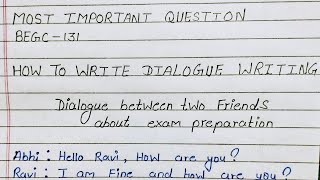 MOST IMPORTANT QUESTION
BEGC-131
HOW TO WRITE DIALOGUE WRITING
Dialogue between two Friends
about exam preparation
Abhi : Hello Ravi, How are you?
Ravi : I am Fine and how are you?